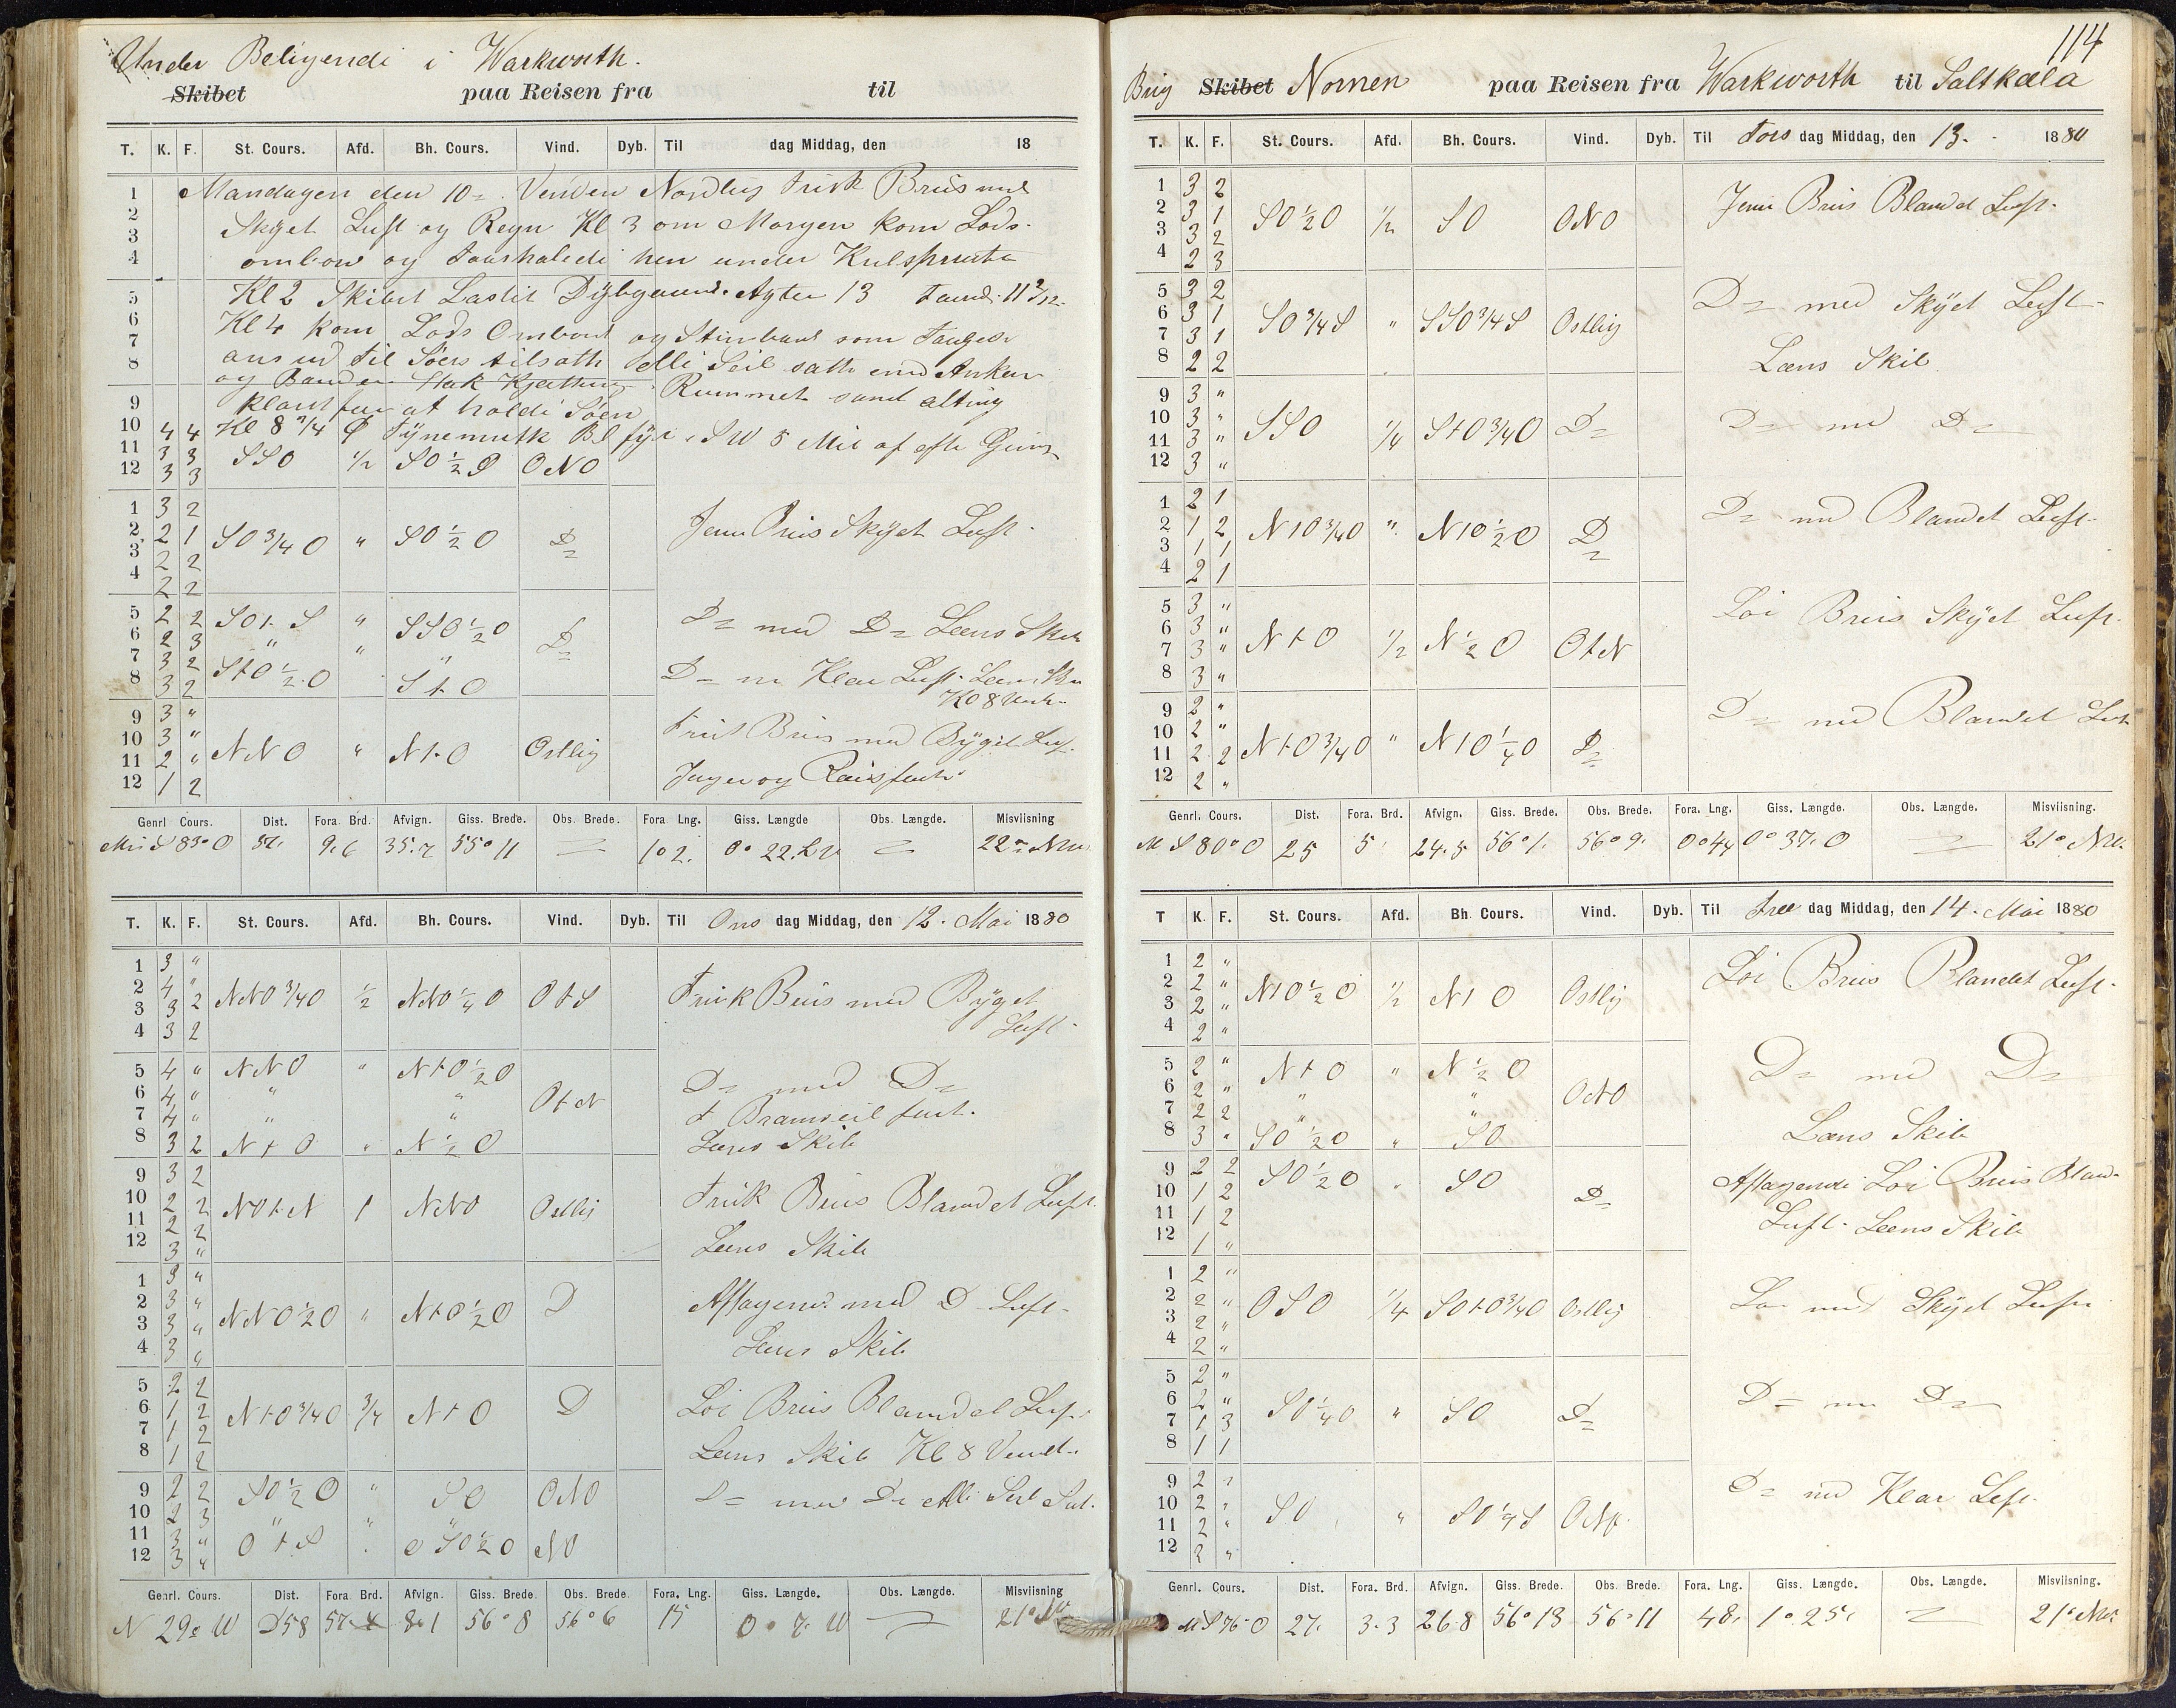 Under Beligende i Warkworth.
Skibet paa Reisen fra til
T. K. F. St. Cours. Afd. Bh. Cours. Vind. Dyb. Til dag Middag, den 18
1 Mandagen den 10 = Vinden Nordlig frisk Briis med
2 Skyet Luft og Regn Kl 3 om Morgen kom Lods
3
4 ombord og hen under
5 Kl 2 Skibet Lastet Dybgaaend. Agter 13
6 Kl 4 kom Lods Ombord og Stimbaad som
7 os ud til Söes tilsatte alle Seil satte
8 og Rummet samt alting
9 klart for at holde Söen
10 4 4 Kl 8 Tynemuth Bl fyr i SW 5 Mil af
11 3 3 SSO 1/2 SO 1/2 O ONO
12 3 3
1 3 2
2 2 1 SO 3/4 O " SO 1/2 O D= Jevn Briis Skyet Luft
3 2 2
4 2 2
5 2 2 SOt S " SSO 1/2 O D= D= med D= Læns Skib
6 2 3 " "
7 3 2 StO 1/2 O StO D= m Klar Luft. Læns Skib
8 3 2 Kl 8 Vendt
9 3 "
10 3 " NNO " NtO Ostlig Frisk Briis med Byget Luft
11 2 "
12 1 2 Jager og fast
Genrl. Cours. Dist. Fora. Brd. Afvign. Giss. Brede. Obs. Brede. Fora. Lng. Giss. Længde Obs. Længde. Misviisning
S 83° O 37. 9.6 35.7 55° 11 1° 2. 0° 22. 22° NW
T. K. F. St. Cours. Afd. Bh. Cours. Vind. Dyb. Til Ons dag Middag, den 12. Mai 1880
1 3 "
2 4 " NNO 3/4 O 1/2 NNO 1/4 O OtS Frisk Briis med Byget
3 3 2 Luft
4 3 2
5 4 " NNO " NtO 1/2 O
6 4 " " " OtN D= med D=
7 4 " " " Bramseil fast.
8 3 2 NtO " N 1/2 O Læns Skib
9 3 2
10 2 2 NOtN 1 NNO Ostlig Frisk Briis Blandet Luft.
11 2 2
12 3 " Læns Skib
1 3 "
2 3 " NNO 1/2 O " NtO 1/2 O D Aftagend med D Luft
3 3 "
4 3 " Læns Skib
5 2 2
6 1 2 NtO 3/4 O 3/4 NtO D Löi Briis Blandet Luft
7 1 2
8 1 2 Læns Skib Kl 8 Vendt.
9 2 2 SO 1/2 O " SO ONO D= med D= Alle Seil Sat.
10 2 3 " " "
11 3 "
12 3 " OtS OSO 1/2 O NO
Genrl. Cours. Dist. Fora Brd. Afvign. Giss. Brede. Obs. Brede. Fora. Lng. Giss. Længde. Obs. Længde. Misviisning
N 29° W D58 57. 8.1 56° 8 56° 6 15 0° 7. W 21°
114
Brig Skibet Nornen paa Reisen fra Warkworth til Saltkæla
T. K. F. St. Cours. Afd. Bh. Cours. Vind. Dyb. Til Tors dag Middag, den 13. 1880
1 3 2
2 3 1 SO 1/2 O 1/2 SO ONO Jevn Briis Blandet Luft.
3 3 2
4 2 3
5 3 2 D= med Skyet Luft
6 3 1 SO 3/4 S " SSO 3/4 S Ostlig
7 3 1
8 2 2 Læns Skib
9 3 "
10 3 " SSO 1/4 StO 3/4 O D= D= med D=
11 3 "
12 3 "
1 2 1
2 1 2 NtO 3/4 O " NtO 1/2 O D= D= med Blandet Luft.
3 1 1
4 2 1
5 3 " Löi Briis Skyet Luft.
6 3 " NtO 1/2 N 1/2 O OtN
7 3 "
8 3 "
9 2 " D= med Blandet Luft
10 2 "
11 2 2 NtO 3/4 O " NtO 1/4 O D=
12 2 "
Genrl. Cours. Dist. Fora. Brd. Afvign. Giss. Brede. Obs. Brede. Fora. Lng. Giss. Længde. Obs. Længde. Misviisning.
M S 80° O 25 5 24.5 56° 1. 56° 9. 0° 44 0° 37. O 21° NW.
T K. F. St. Cours. Afd. Bh. Cours. Vind. Dyb. Til Fre dag Middag, den 14. Mai 1880
1 2 "
2 2 " NtO 1/2 O 1/2 NtO Ostlig Löi Briis Blandet Luft.
3 2 "
4 2 "
5 2 " NtO " N 1/2 O D= med D=
6 2 " " " ONO
7 2 2 " "
8 3 " SO 1/2 O " SO Læns Skib
9 2 2 SO 1/2 O " SO Aftagende Löi Briis Bland.
10 1 2 D=
11 1 2 Luft. Læns Skib
12 1 "
1 2 "
2 2 " OSO 1/4 SOtO 3/4 O Ostlig Löi med Skyet Luft
3 2 "
4 2 "
5 2 "
6 2 " SO 1/4 O " SO D= D= med D=
7 1 3
8 1 1
9 2 " D= med Klar Luft.
10 2 "
11 2 " SO " SO 1/4 S
12 2 "
Genrl. Cours. Dist. Fora. Brd. Afvign. Giss. Brede. Obs. Brede. Fora. Lng. Giss. Længde. Obs. Længde. Misviisning.
M S 76° O 27. 3.3 26.8 56° 13 56° 11 48. 1° 25. 21° NW.